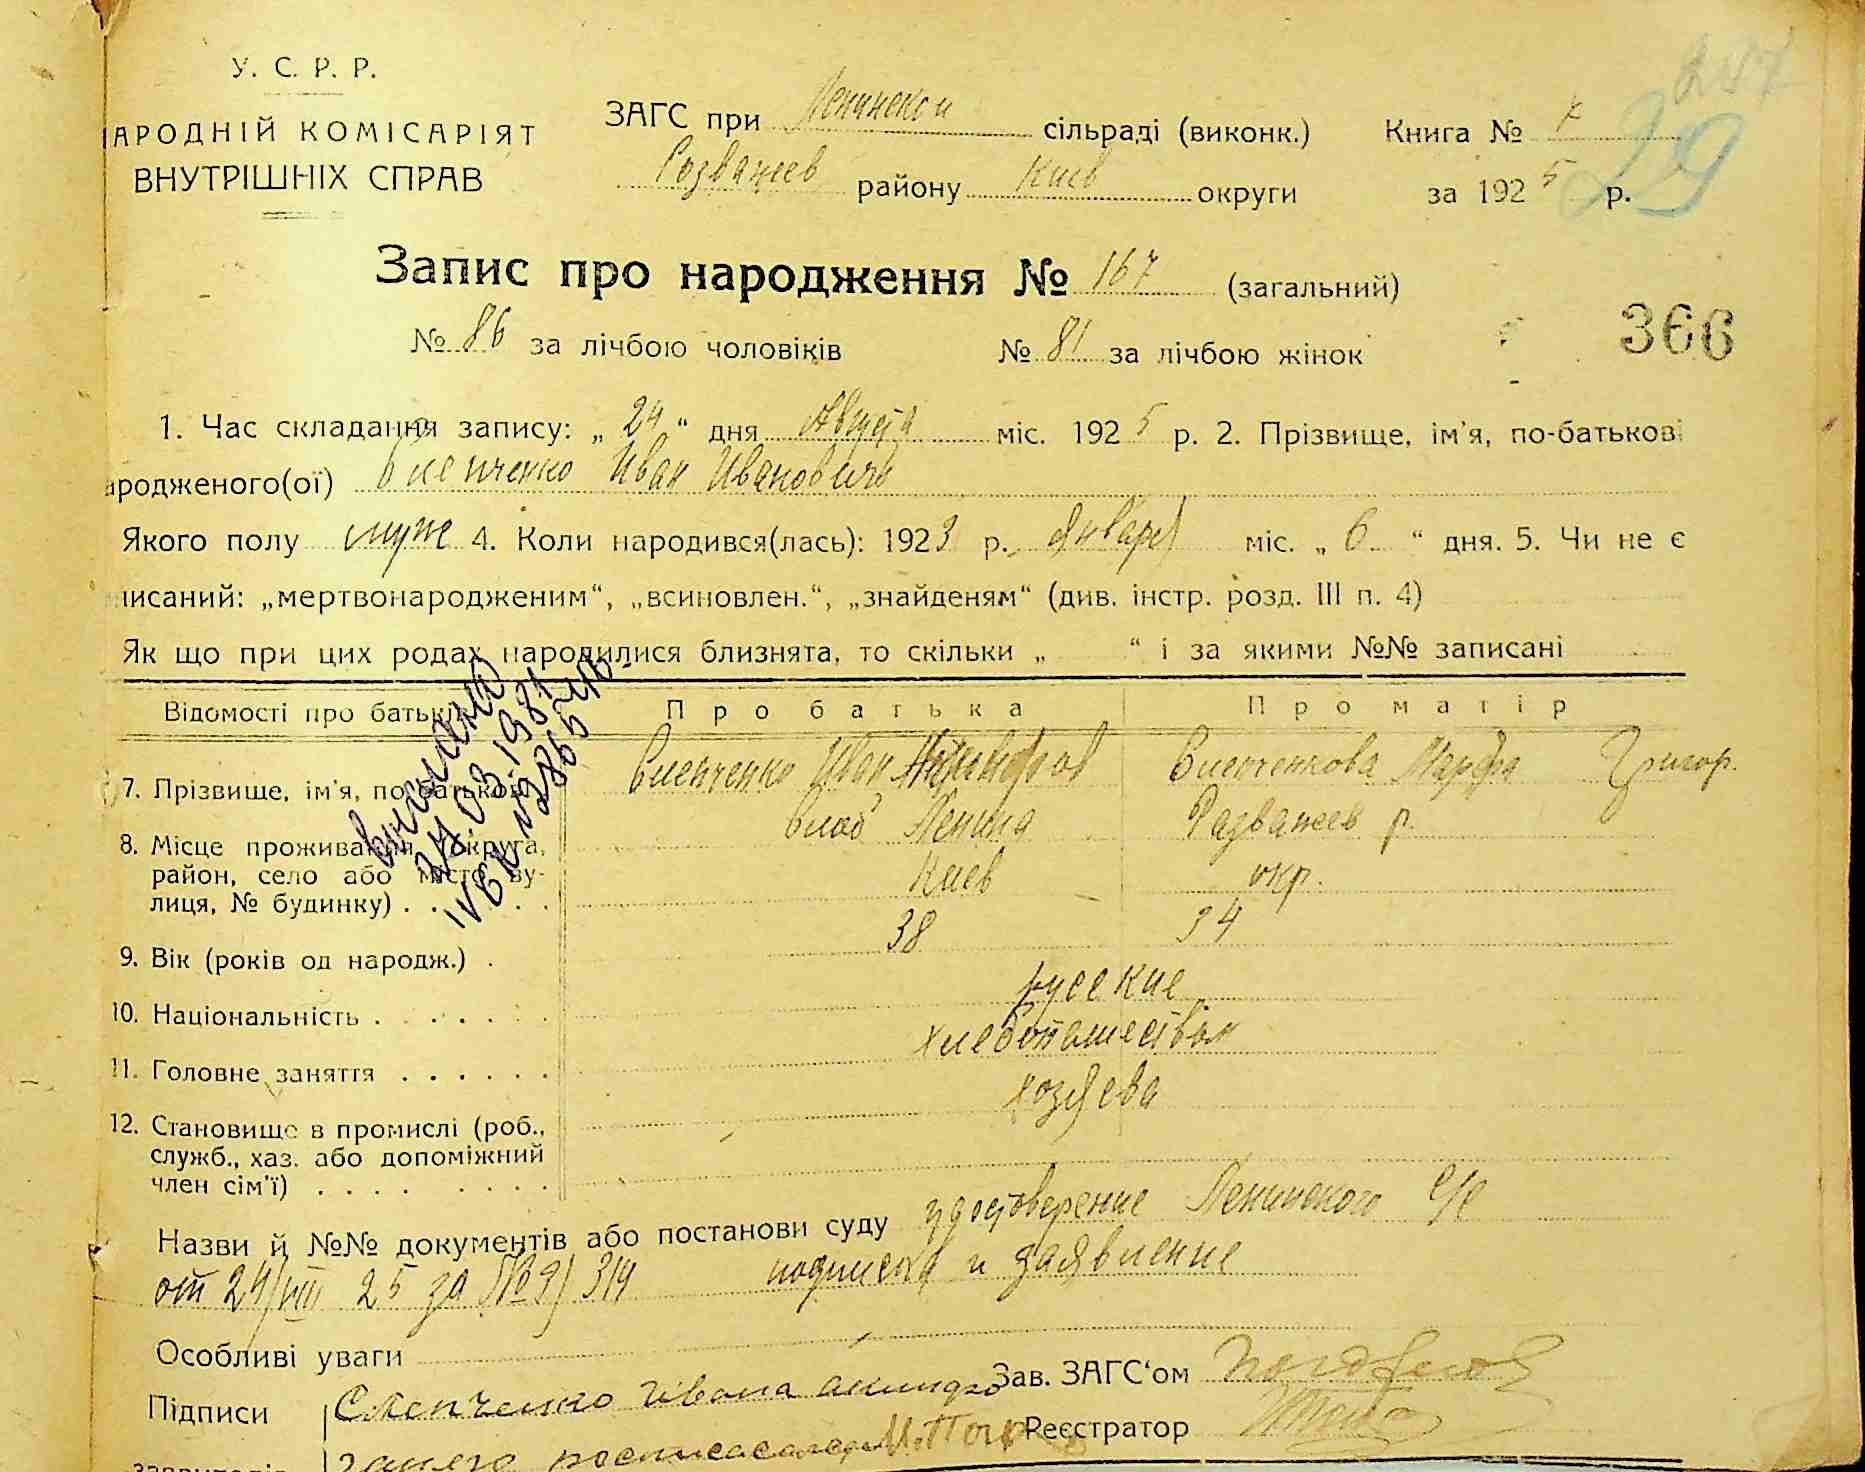 247
29
У. С. Р. Р.
НАРОДНІЙ КОМІСАРІЯТ
ВНУТРІШНІХ СПРАВ
ЗАГС при Ленинской сільраді (виконк.) Книга №
Розважев району Киев округи за 1925 р.
Запис про народження № 167 (загальний)
№ 86 за лічбою чоловіків № 81 за лічбою жінок
366
1. Час складання запису: „24“ дня Августа міс. 1925 р. 2. Прізвище, ім'я, по-батькові
ародженого(ої) Слепченко Иван Иванович
Якого полу муж 4. Коли народився(лась): 1923 р. Января міс. „6“ дня. 5. Чи не є
писаний: „мертвонародженим“, „всиновлен.“, „знайденям“ (див. інстр. розд. III п. 4)
Як що при цих родах народилися близнята, то скільки „ “ і за якими №№ записані
Відомості про батьків Про батька Про матір
7. Прізвище, ім'я, по батькові Слепченко Иван Слепченкова Марфа Григор.
8. Місце проживання (округа, район, село або місто, вулиця, № будинку) . . . . слоб Ленина Розважев р.
Киев окр.
9. Вік (років од народж.) . 38 34
10. Національність . . . . . . . русские
11. Головне заняття . . . . . . хлебопашеством
12. Становище в промислі (роб., служб., хаз. або допоміжний член сім'ї) . . . . . . . . хозяева
выдана
24.03.1981
Назви й №№ документів або постанови суду удостоверение Ленинского с/с
от 24/VIII 25 за № 314 подписка и заявление
Особливі уваги
Зав. ЗАГС'ом
Підписи Слепченко Ивана
Реєстратор